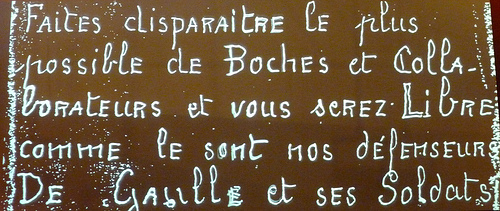 Faites disparaitre le plus
possible de Boches et Colla-
borateurs et vous serez Libre
comme le sont nos défenseurs
De Gaulle et ses Soldats